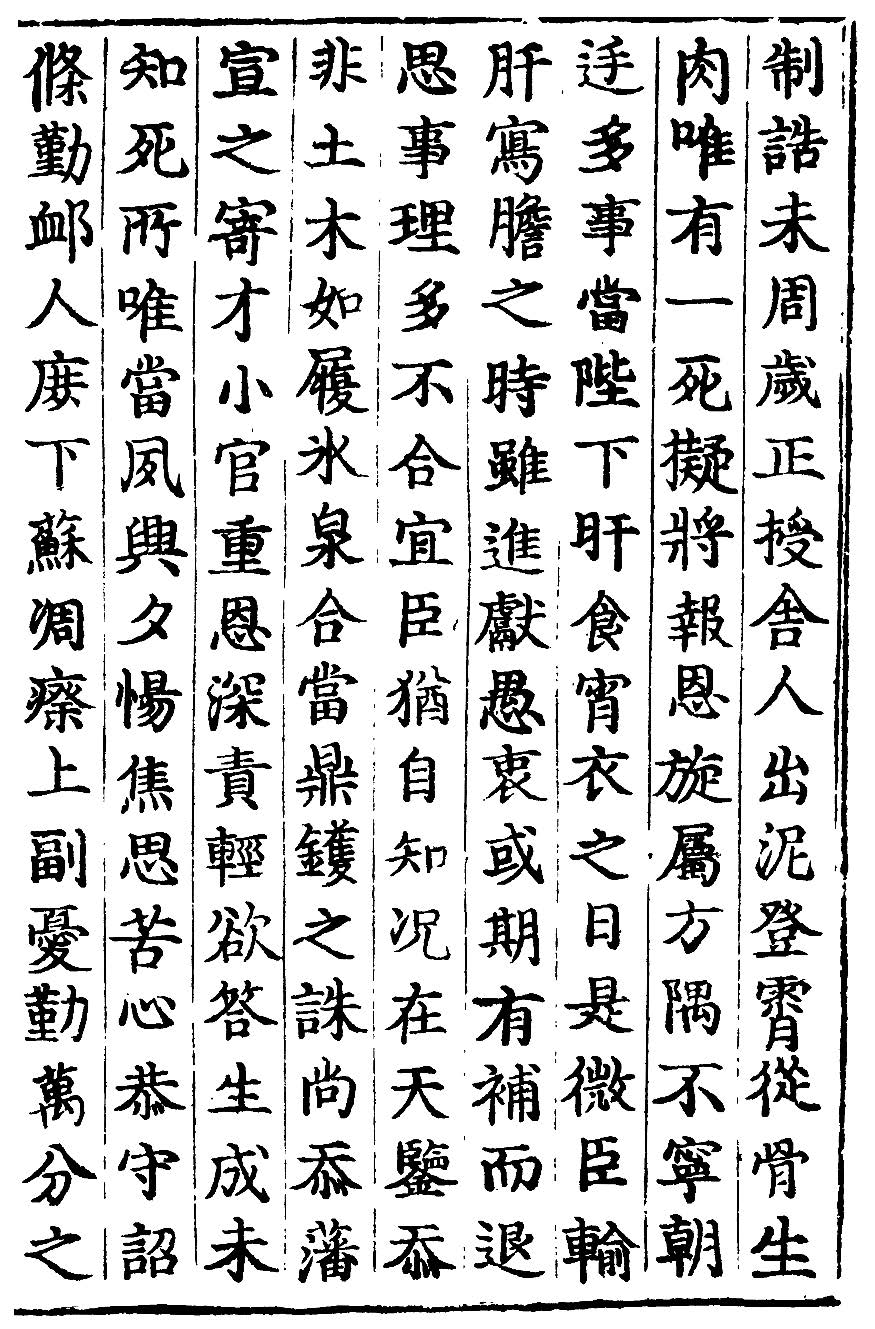 制誥未周歲正授舎人出泥登霄從骨生
肉唯有一死擬將報恩旋屬方隅不寧朝
廷多事當陛下旰食宵衣之日是微臣輸
肝寫膽之時雖進獻愚衷或期有補而退
思事理多不合宜臣猶自知况在天鑒忝
非土木如履氷泉合當鼎鑊之誅尚忝藩
宣之寄才小官重恩深責輕欲答生成未
知死所唯當夙興夕惕焦思苦心恭守詔
條勤䘏人庶下蘇凋瘵上副憂勤萬分之